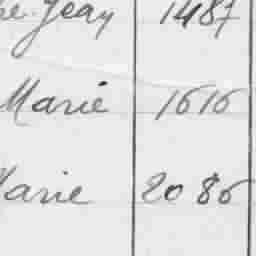 Jeay 1487
Marie 1616
Marie 2086